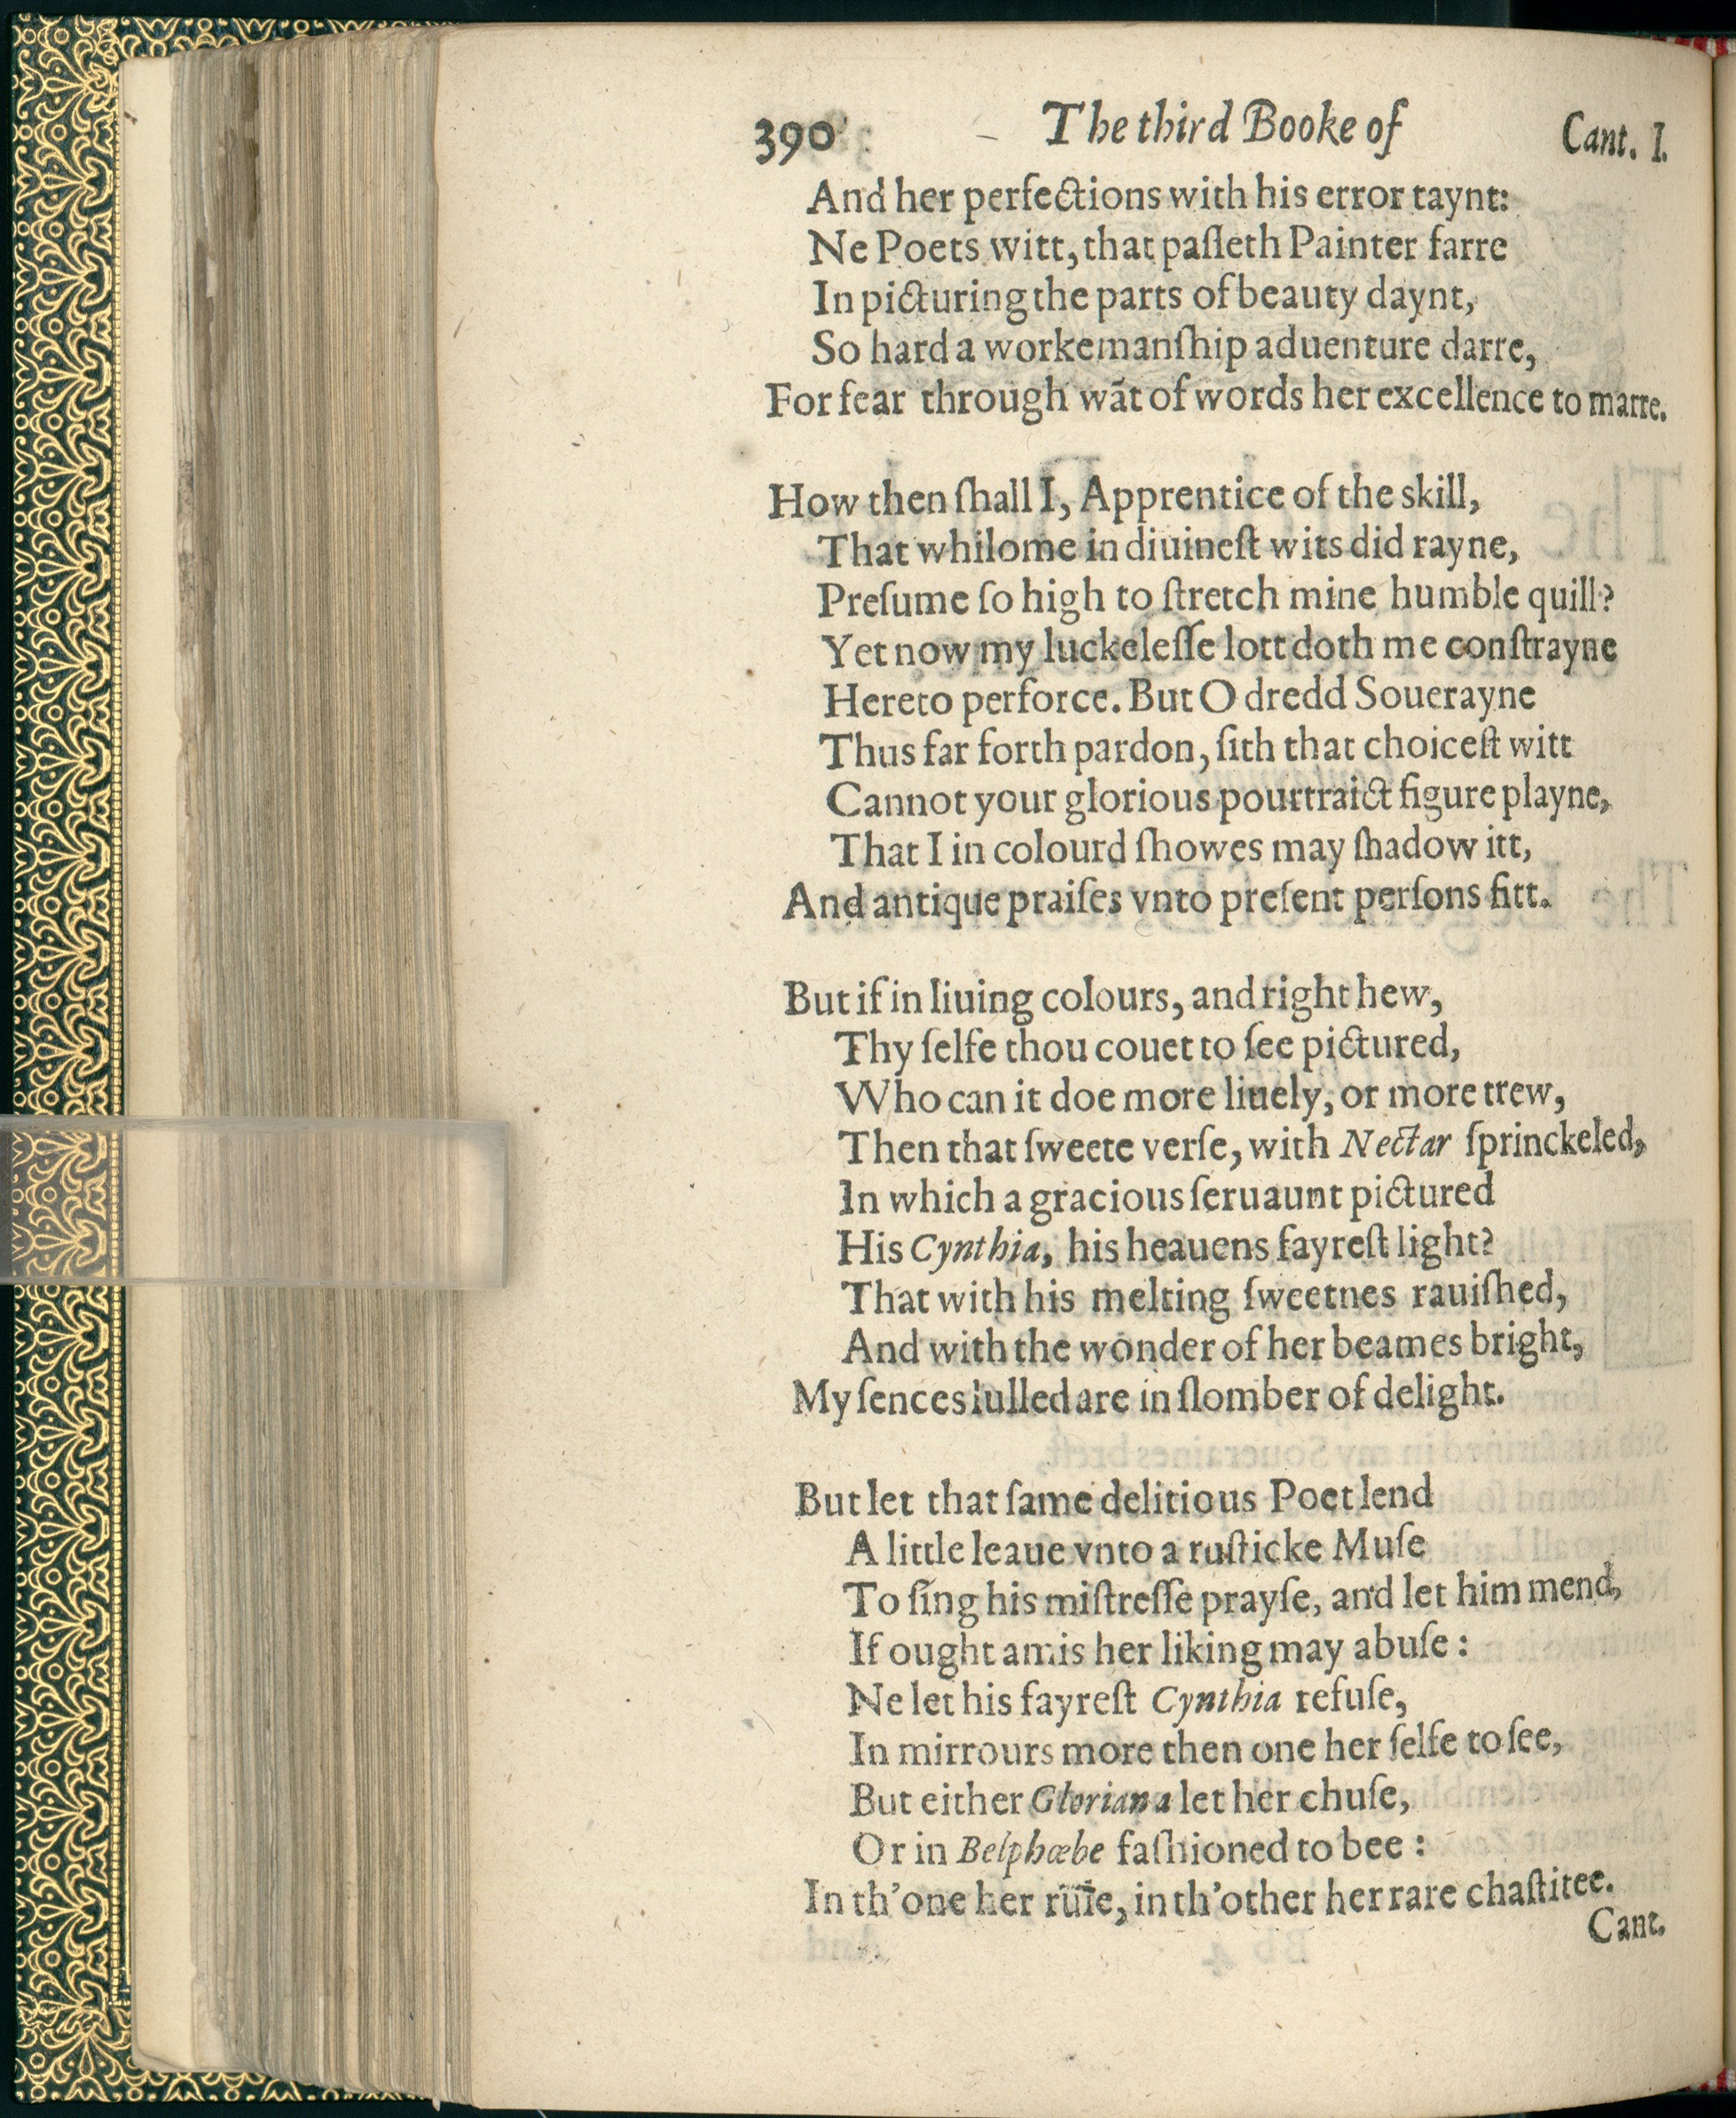 390 The third Booke of Cant. I.
And her perfections with his error taynt:
Ne Poets witt, that paſſeth Painter farre
In picturing the parts of beauty daynt,
So hard a workemanſhip aduenture darre,
For fear through wãt of words her excellence to marre.
How then ſhall I, Apprentice of the skill,
That whilome in diuineſt wits did rayne,
Preſume ſo high to ſtretch mine humble quill?
Yet now my luckeleſſe lott doth me conſtrayne
Hereto perforce. But O dredd Souerayne
Thus far forth pardon, ſith that choiceſt witt
Cannot your glorious pourtraict figure playne,
That I in colourd ſhowes may ſhadow itt,
And antique praiſes vnto preſent perſons fitt.
But if in liuing colours, and right hew,
Thy ſelfe thou couet to ſee pictured,
Who can it doe more liuely, or more trew,
Then that ſweete verſe, with Nectar ſprinckeled,
In which a gracious ſeruaunt pictured
His Cynthia, his heauens fayreſt light?
That with his melting ſweetnes rauiſhed,
And with the wonder of her beames bright,
My ſences lulled are in ſlomber of delight.
But let that ſame delitious Poet lend
A little leaue vnto a ruſticke Muſe
To ſing his miſtreſſe prayſe, and let him mend,
If ought amis her liking may abuſe:
Ne let his fayreſt Cynthia refuſe,
In mirrours more then one her ſelfe to ſee,
But either Gloriana let her chuſe,
Or in Belphœbe faſhioned to bee:
In th'one her rule, in th'other her rare chaſtitee.
Cant.